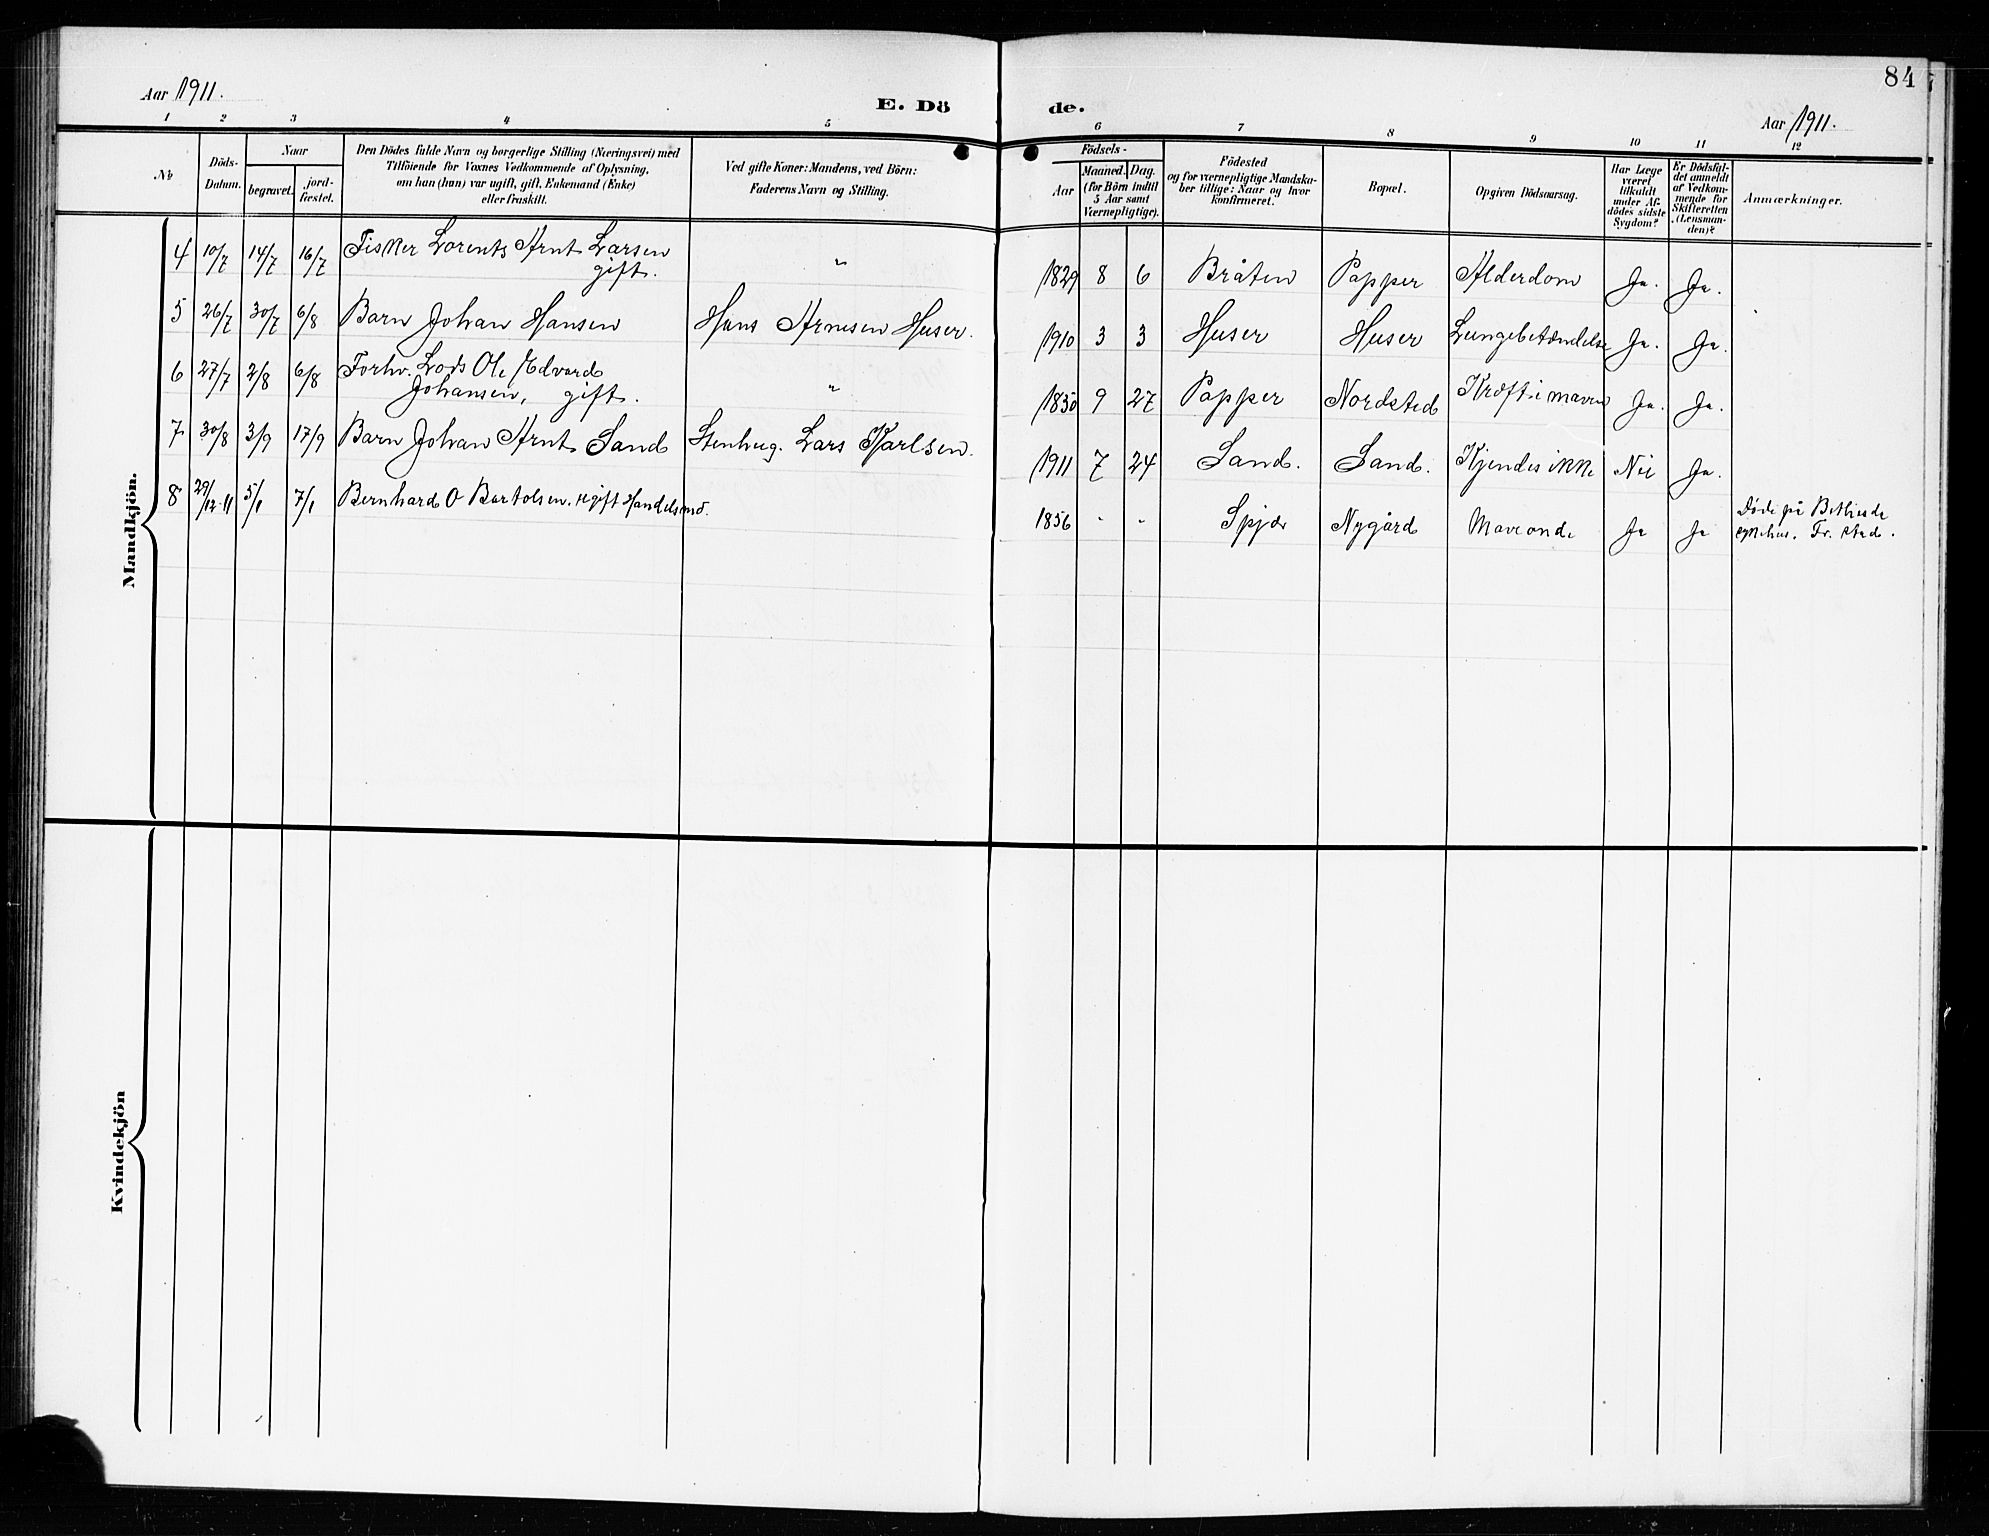 84
Aar 1911.
E. Dö
de.
Aar 1911.
1 2 3 4 5
6 7 8 9 10 11 12
No
Döds-
Datum.
Naar
begravet.
jord-
fæstet.
Den Dödes fulde Navn og borgerlige Stilling (Næringsvei) med
Tilföiende for Voxnes Vedkommende af Oplysning,
om han (hun) var ugift, gift, Enkemand (Enke)
eller fraskilt.
Ved gifte Koner: Mandens, ved Börn:
Faderens Navn og Stilling.
Födsels-
Aar
Maaned.
Dag.
(for Börn indtil
5 Aar samt
Værnepligtige).
Födested
og for værnepligtige Mandska-
ber tillige: Naar og hvor
konfirmeret.
Bopæl.
Opgiven Dödsaarsag.
Har Læge
været
tilkaldt
under Af-
dödes sidste
Sygdom?
Er Dödsfal-
det anmeldt
af Vedkom-
mende for
Skifteretten
(Lensman-
den)?
Anmærkninger.
Mandkjön.
4 10/7 14/7 16/7 Fisker Lorents Arnt Larsen
gift. " 1829 8 6 Bråten Papper Alderdom Ja. Ja.
5 26/7 30/7 6/8 Barn Johan Hansen Hans Arnesen Huser. 1910 3 3 Huser Huser Lungebetændelse Ja. Ja.
6 27/7 2/8 6/8 Forhv. Lods Ole Edvard
Johansen, gift. " 1850 9 27 Papper Nordsted Kræft i maven Ja. Ja.
7 30/8 3/9 17/9 Barn Johan Arnt Sand Stenhug. Lars Karlsen. 1911 7 24 Sand. Sand. Kjendes ikke Nei Ja.
8 29/12-11 5/1 7/1 Bernhard O Bartolsen. ugift Handelsmd. 1856 - - Spjær Nygård Maveonde Ja Ja Døde på Bethesda
sykehus. Fr. stad.
Kvindekjön